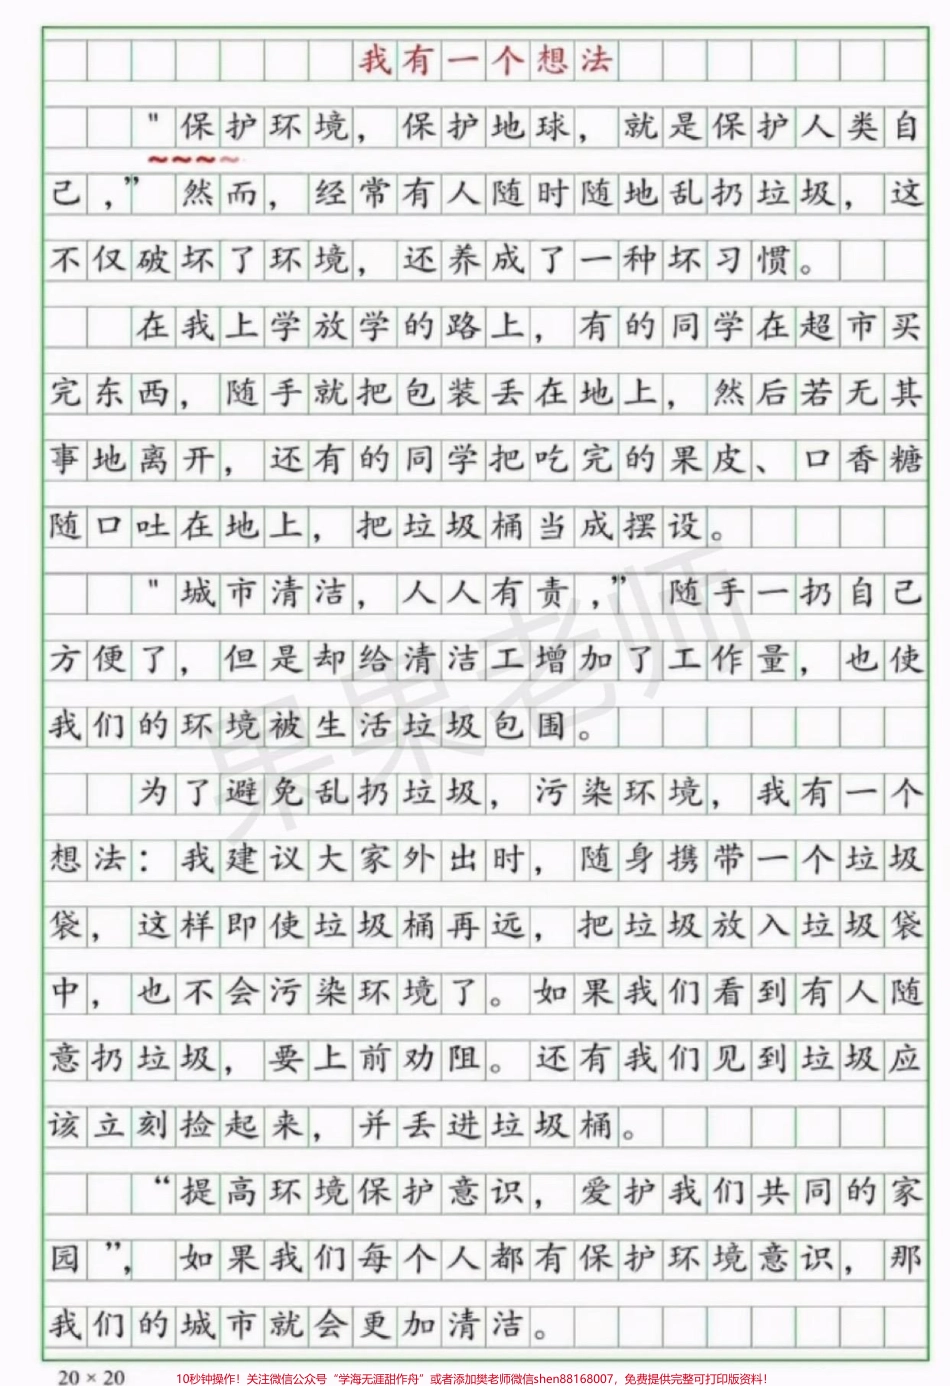 我有一个想法
"保护环境，保护地球，就是保护人类自
己，”然而，经常有人随时随地乱扔垃圾，这
不仅破坏了环境，还养成了一种坏习惯。
在我上学放学的路上，有的同学在超市买
完东西，随手就把包装丢在地上，然后若无其
事地离开，还有的同学把吃完的果皮、口香糖
随口吐在地上，把垃圾桶当成摆设。
"城市清洁，人人有责，”随手一扔自己
方便了，但是却给清洁工增加了工作量，也使
我们的环境被生活垃圾包围。
为了避免乱扔垃圾，污染环境，我有一个
想法：我建议大家外出时，随身携带一个垃圾
袋，这样即使垃圾桶再远，把垃圾放入垃圾袋
中，也不会污染环境了。如果我们看到有人随
意扔垃圾，要上前劝阻。还有我们见到垃圾应
该立刻捡起来，并丢进垃圾桶。
“提高环境保护意识，爱护我们共同的家
园”，如果我们每个人都有保护环境意识，那
我们的城市就会更加清洁。
果果老师
20×20
10秒钟操作！关注微信公众号“学海无涯甜作舟”或者添加樊老师微信shen88168007，免费提供完整可打印版资料！